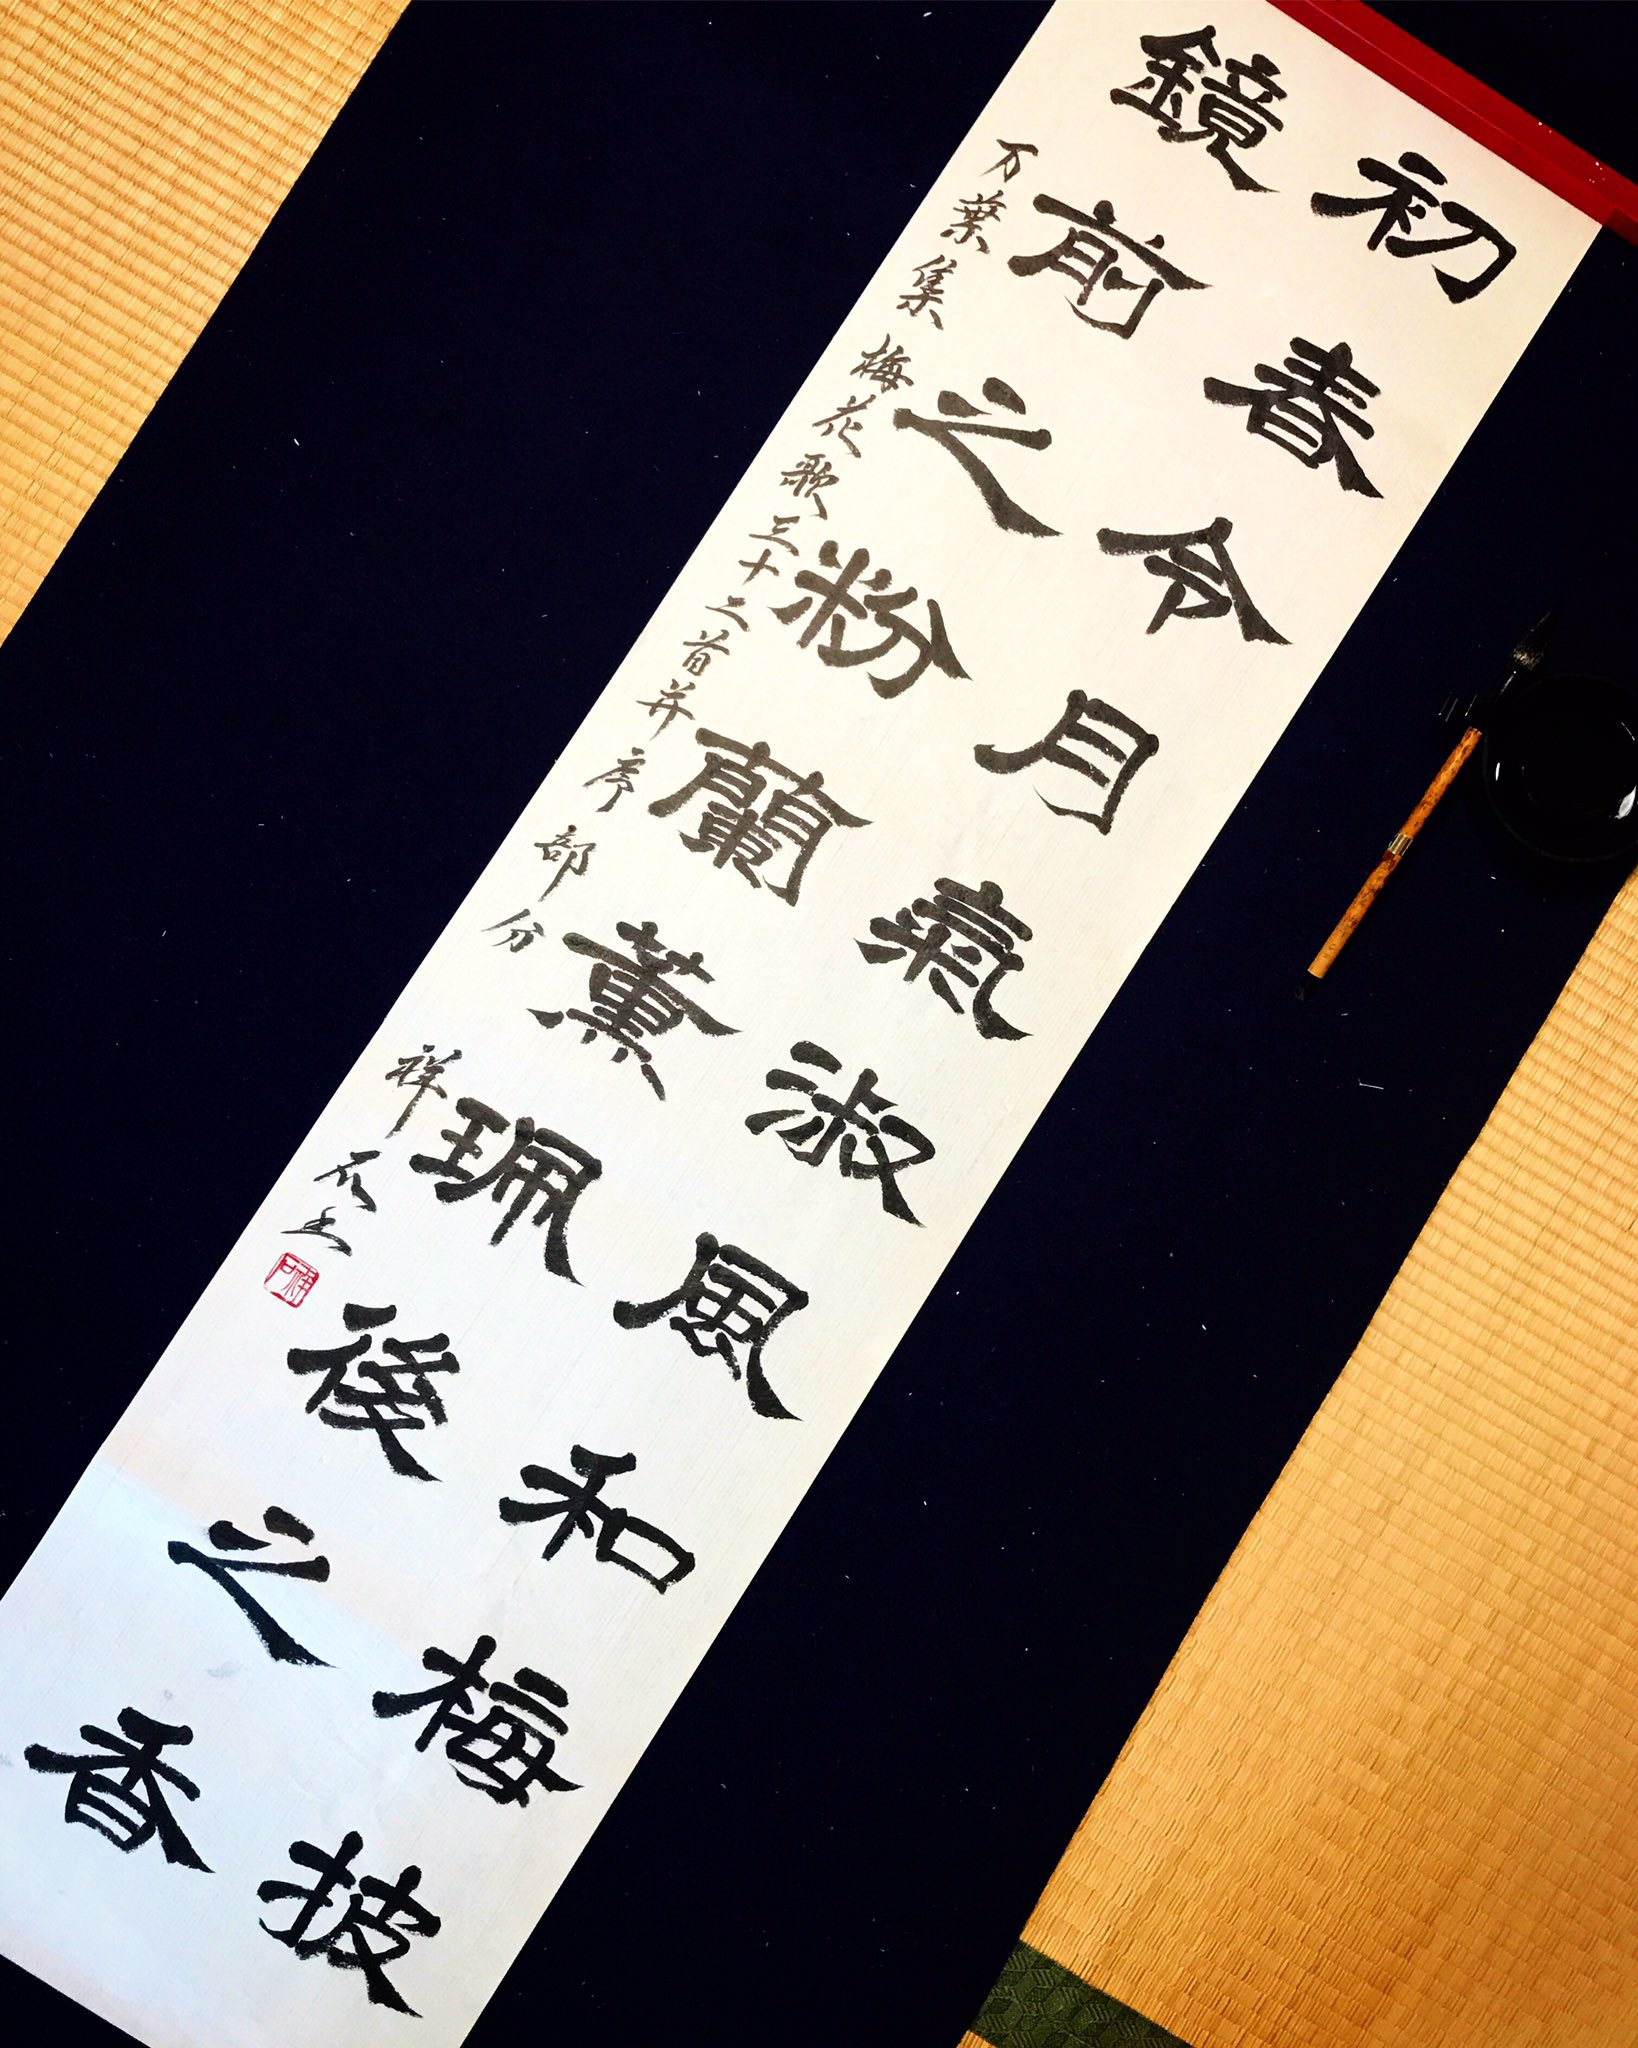 初春令月氣淑風和梅披
鏡前之粉蘭薫珮後之香
万葉集梅花歌三十二首并序部分